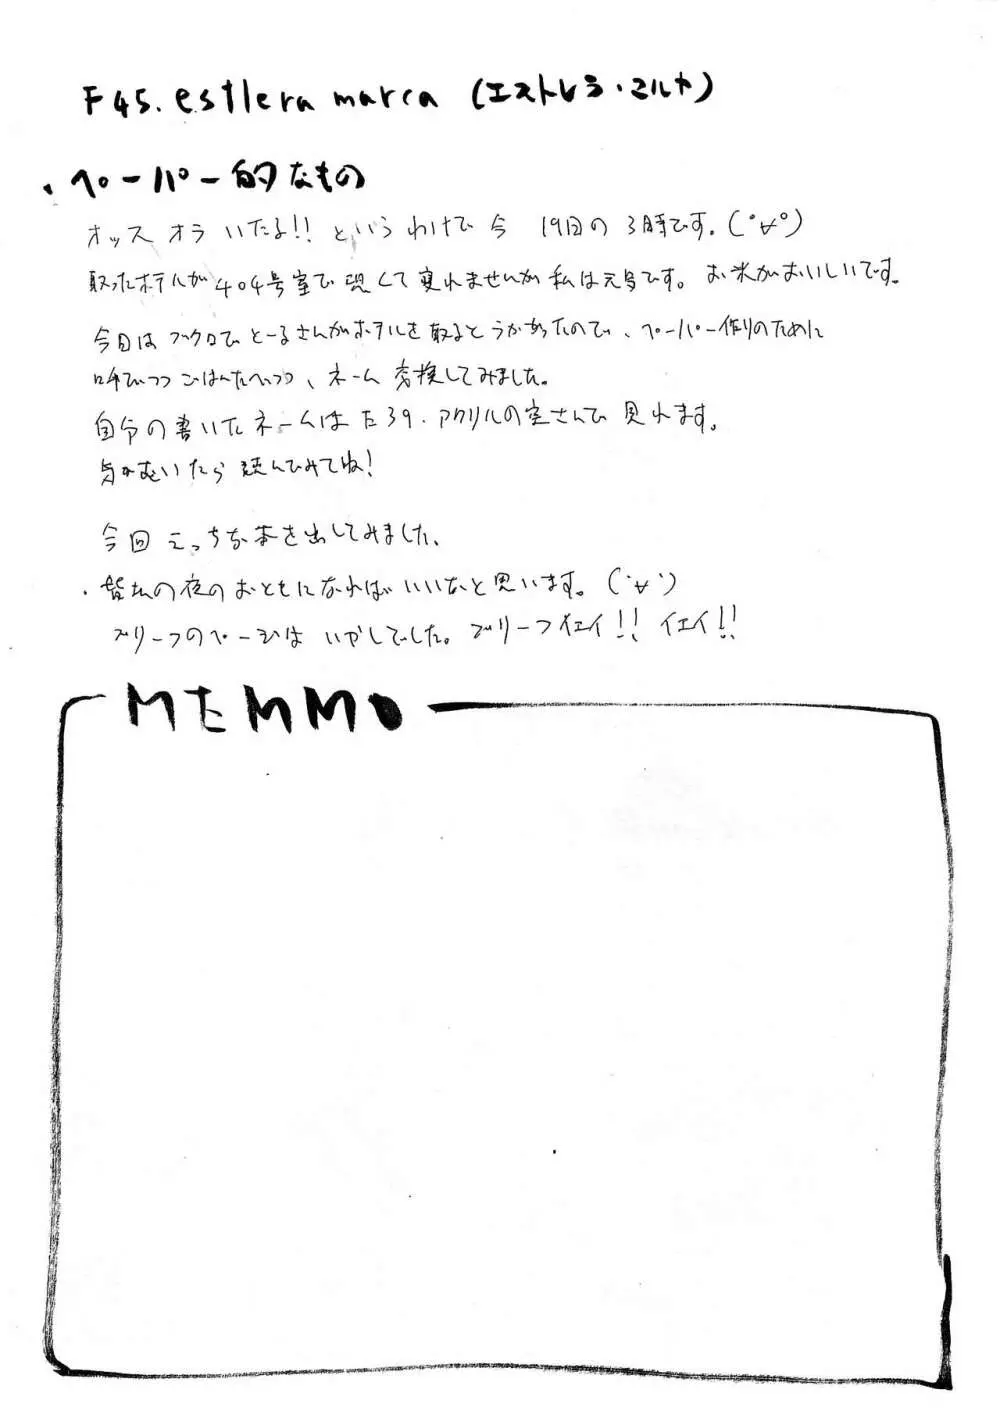 F45. estlera marca (エストレラ・マルカ)
・ペーパー的なもの
オッス オラ いたる!! というわけで 今 19日の 3時です。(°∀°)
取ったホテルが404号室で 寝れませんが 私は元気です。お米がおいしいです。
今日は ブクロで とーるさんがホテルを取るとうかがったので、ペーパー作りのために
呼びつつ ごはんたべつつ、ネーム 交換してみました。
自分の書いたネームは た39・アクリルの空さんで 見れます。
気がむいたら 読んでみてね!
今回 えっちな本を出してみました。
・皆さんの夜のおともになればいいなと思います。(・∀・)
ブリーフのページは いかしてでした。ブリーフイエイ!! イエイ!!
MEMMO